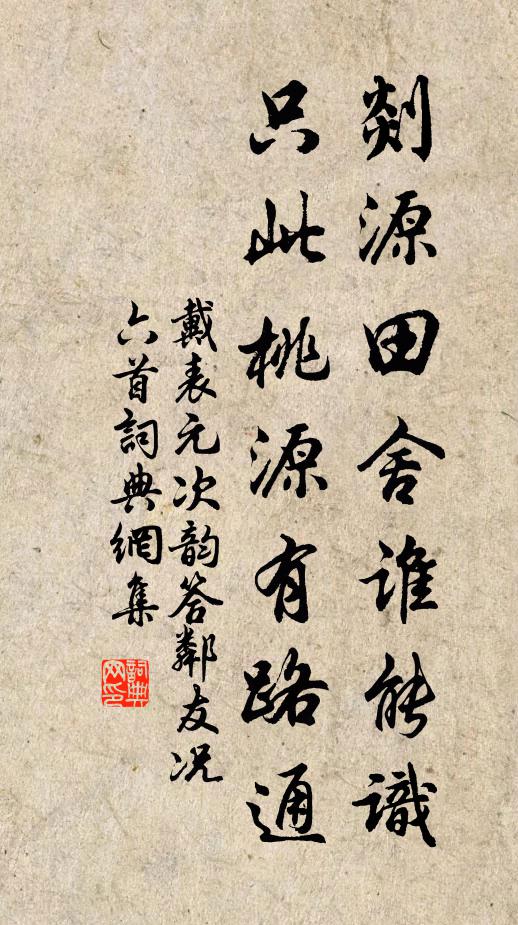 剡源田舍谁能識
只此桃源有路通
戴表元次韵答鄰友况
六首詞典網集
詞典
网印